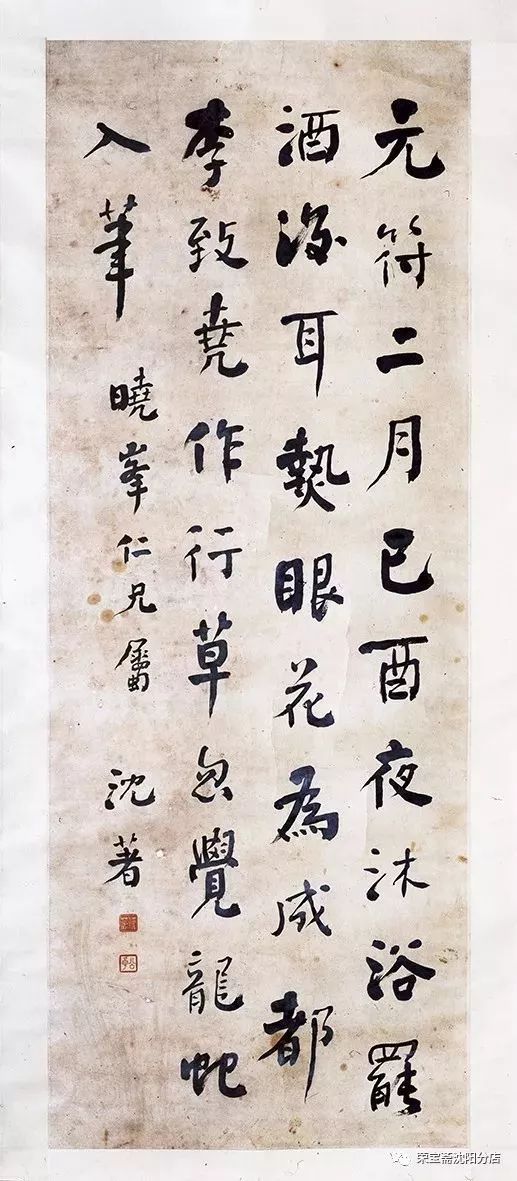 元符二月己酉夜沐浴罷
酒後耳熱眼花為成都
李致堯作行草忽覺龍蛇
入筆
曉峯仁兄屬
沈著
荣宝斋沈阳分店